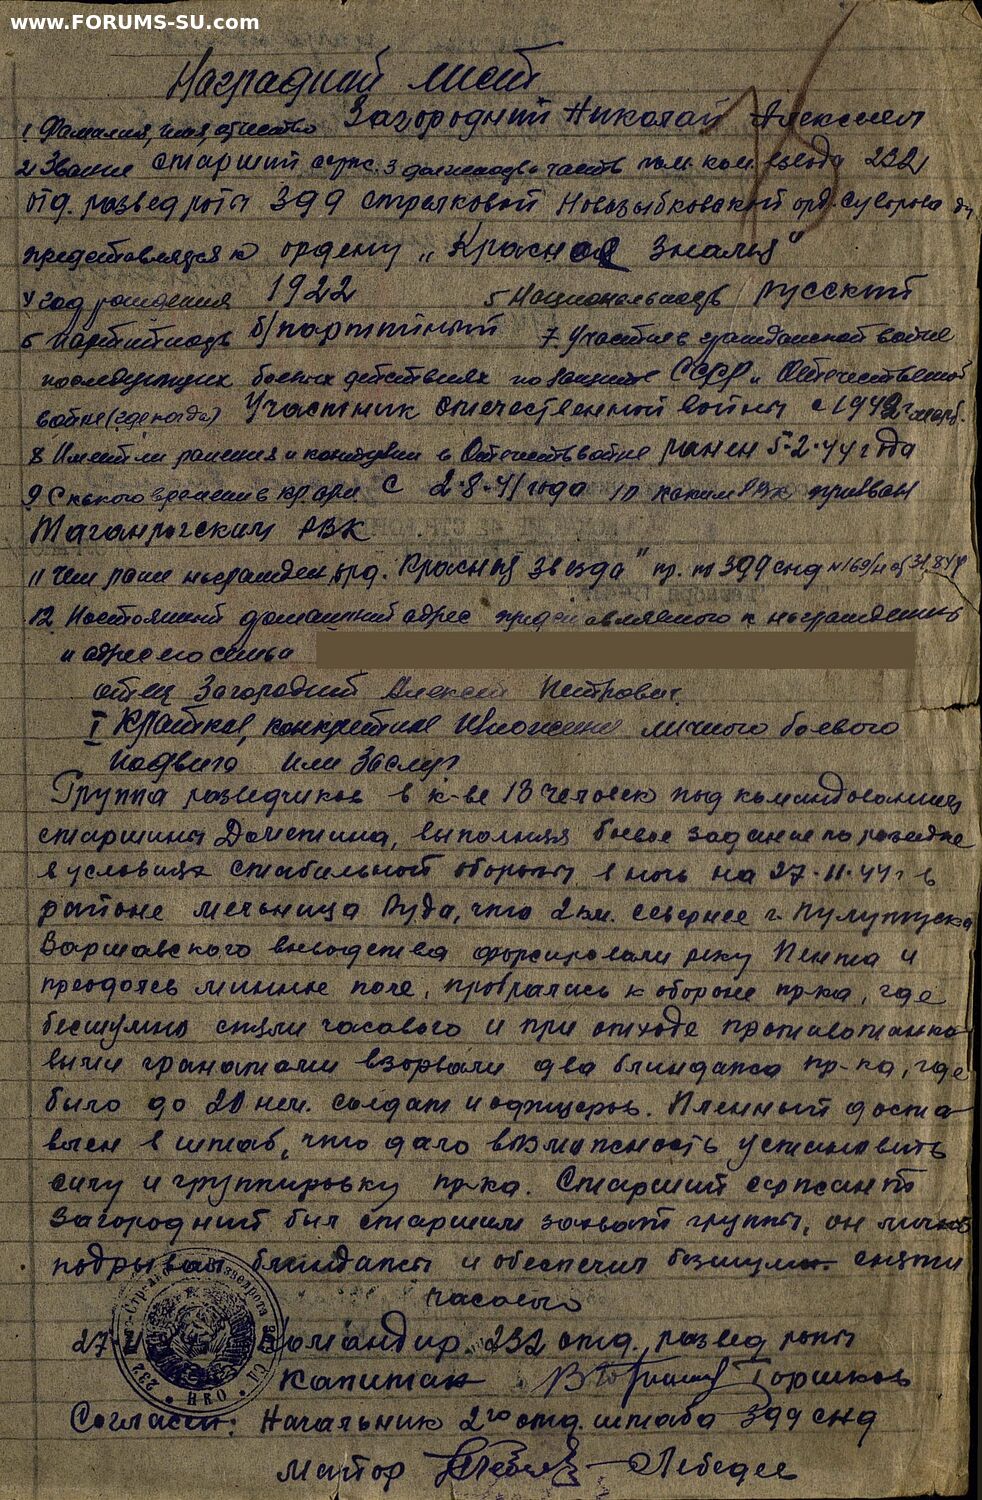 www.FORUMS-SU.com
Наградной лист
1 Фамилия, имя, отчество Загородний Николай Алексеев
2 Звание старший серж. 3 должность часть пом. ком. взвода 232
отд. разведроты 399 стрелковой Новозыбковской орд. Суворова ди
представляется к ордену „Красное Знамя"
4 год рождения 1922 5 Национальность русский
6 Партийность б/партийный 7. Участие в гражданской войне
последующих боевых действиях по защите СССР и Отечественной
войне (где когда) Участник отечественной войны с 1942 г
8 Имеет ли ранения и контузии в Отечеств войне ранен 5.2.44 года
9 С какого времени в кр арм с 2.8.41 года 10 каким РВК призван
Таганрогским РВК
11 Чем ранее награжден орд. "Красная звезда" пр. по 399 снд №169/н от 31.8.44
12 Постоянный домашний адрес представляемого к награждению
и адрес его семьи
отец Загородний Алексей Петрович
I Краткое, конкретное изложение личного боевого
подвига или заслуг
Группа разведчиков в к-ве 13 человек под командованием
старшины Дометина, выполняя боевое задание по разведке
в условиях стабильной обороны в ночь на 27.11.44 г в
районе мельница Руда, что 2 км. севернее г. Пулутуска
Варшавского выеодства форсировали реку Пента и
преодолев минное поле, пробрались к обороне пр-ка, где
бесшумно сняли часового и при отходе противотанко-
выми гранатами взорвали два блиндажа пр-ка, где
было до 20 нем. солдат и офицеров. Пленный доста-
влен в штаб, что дало возможность установить
силу и группировку пр-ка. Старший сержант
Загородний был старшим захват группы, он лично
подрывал блиндажи и обеспечил безшумн. снятие
часового
27. Командир 232 отд. развед роты
капитан Горшков
Согласен: Начальник 2го отд. штаба 399 снд
майор Лебедев